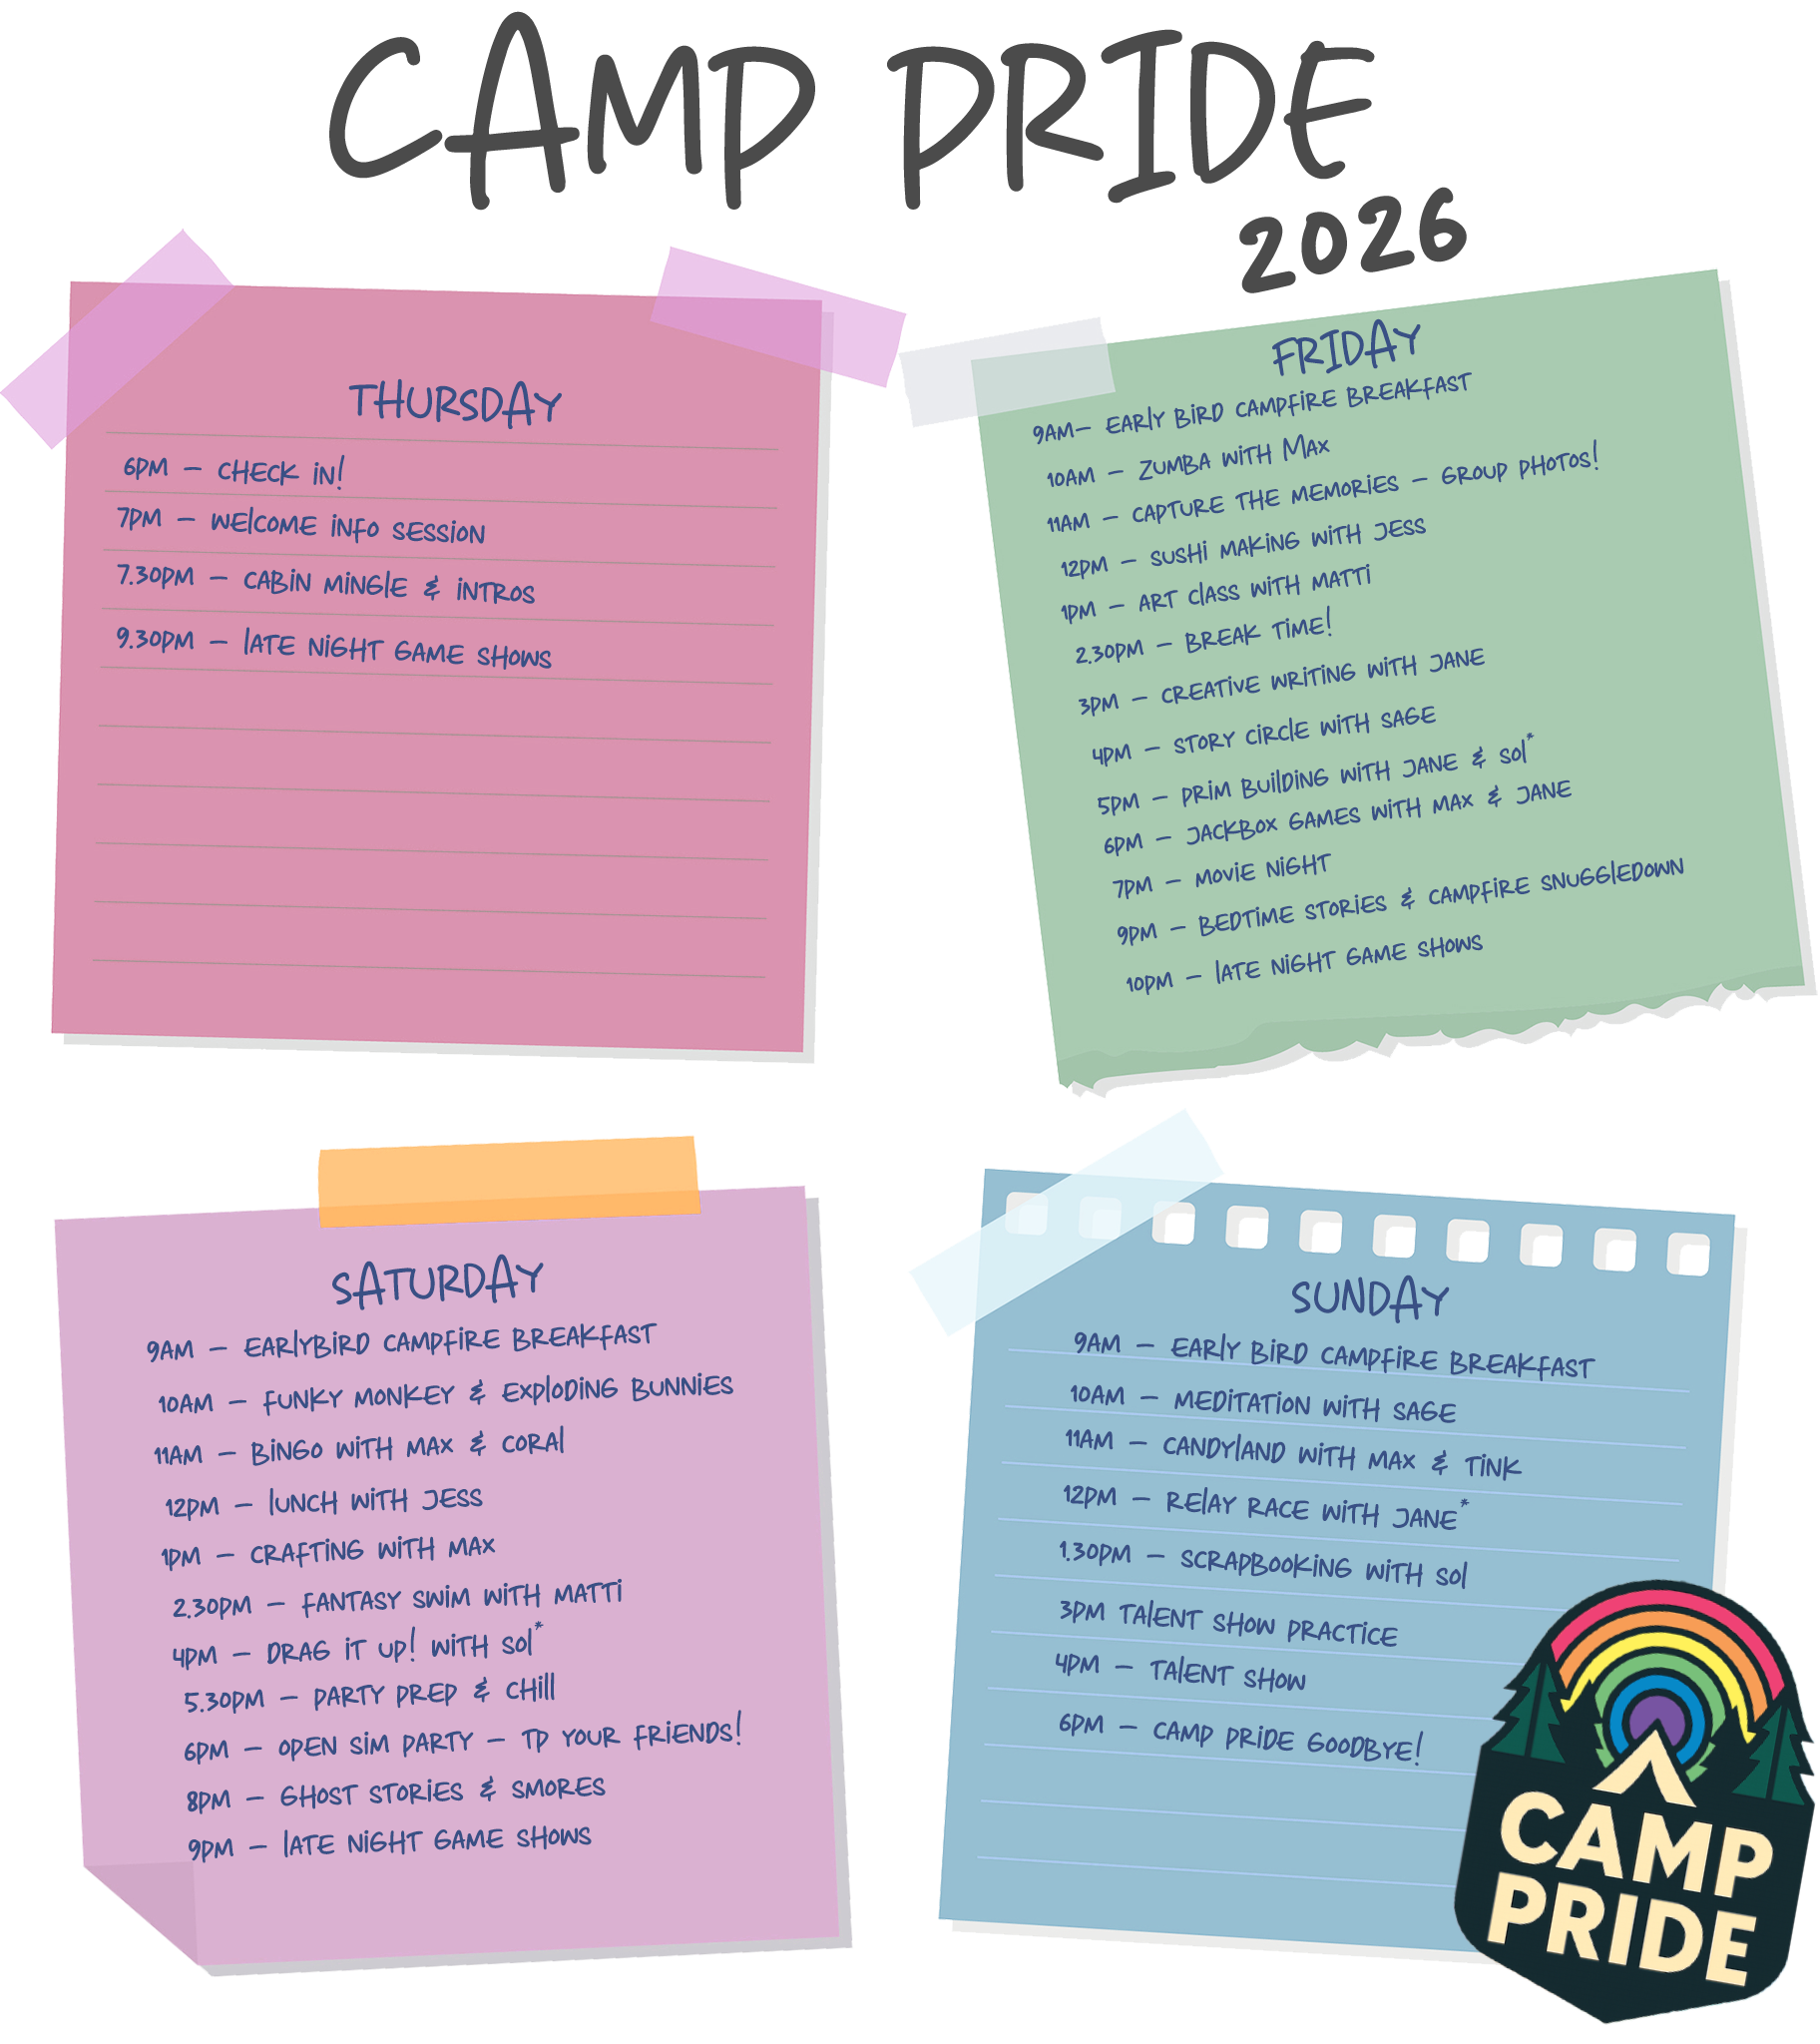 CAMP PRIDE
2026
THURSDAY
6PM – CHECK IN!
7PM – WELCOME INFO SESSION
7.30PM – CABIN MINGLE & INTROS
9.30PM – LATE NIGHT GAME SHOWS
FRIDAY
9AM– EARLY BIRD CAMPFIRE BREAKFAST
10AM – ZUMBA WITH MAX
11AM – CAPTURE THE MEMORIES – GROUP PHOTOS!
12PM – SUSHI MAKING WITH JESS
1PM – ART CLASS WITH MATTI
2.30PM – BREAK TIME!
3PM – CREATIVE WRITING WITH JANE
4PM – STORY CIRCLE WITH SAGE
5PM – PRIM BUILDING WITH JANE & SOL*
6PM – JACKBOX GAMES WITH MAX & JANE
7PM – MOVIE NIGHT
9PM – BEDTIME STORIES & CAMPFIRE SNUGGLEDOWN
10PM – LATE NIGHT GAME SHOWS
SATURDAY
9AM – EARLYBIRD CAMPFIRE BREAKFAST
10AM – FUNKY MONKEY & EXPLODING BUNNIES
11AM – BINGO WITH MAX & CORAL
12PM – LUNCH WITH JESS
1PM – CRAFTING WITH MAX
2.30PM – FANTASY SWIM WITH MATTI
4PM – DRAG IT UP! WITH SOL*
5.30PM – PARTY PREP & CHILL
6PM – OPEN SIM PARTY – TP YOUR FRIENDS!
8PM – GHOST STORIES & SMORES
9PM – LATE NIGHT GAME SHOWS
SUNDAY
9AM – EARLY BIRD CAMPFIRE BREAKFAST
10AM – MEDITATION WITH SAGE
11AM – CANDYLAND WITH MAX & TINK
12PM – RELAY RACE WITH JANE*
1.30PM – SCRAPBOOKING WITH SOL
3PM TALENT SHOW PRACTICE
4PM – TALENT SHOW
6PM – CAMP PRIDE GOODBYE!
CAMP
PRIDE